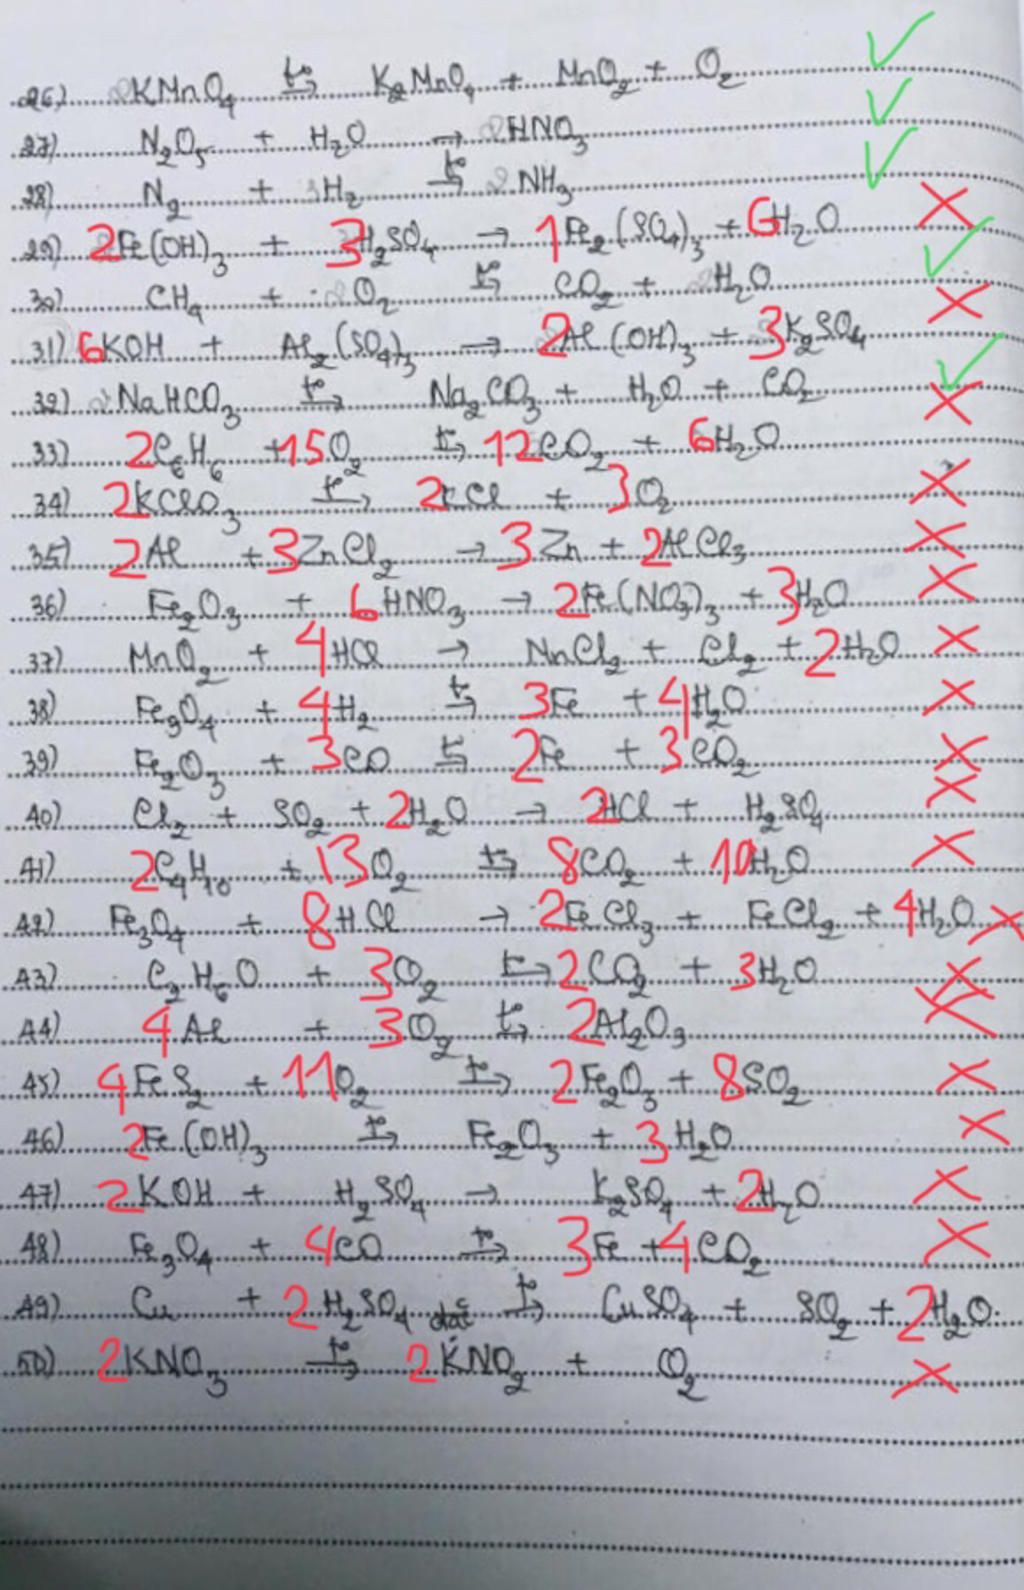 26) 2KMnO4 t°→ K2MnO4 + MnO2 + O2
27) N2O5 + H2O → 2HNO3
28) N2 + 3H2 t°→ 2NH3
29) 2Fe(OH)3 + 3H2SO4 → 1Fe2(SO4)3 + 6H2O
30) CH4 + 2O2 t°→ CO2 + 2H2O
31) 6KOH + Al2(SO4)3 → 2Al(OH)3 + 3K2SO4
32) 2NaHCO3 t°→ Na2CO3 + H2O + CO2
33) 2C6H6 + 15O2 t°→ 12CO2 + 6H2O
34) 2KClO3 t°→ 2KCl + 3O2
35) 2Al + 3ZnCl2 → 3Zn + 2AlCl3
36) Fe2O3 + 6HNO3 → 2Fe(NO3)3 + 3H2O
37) MnO2 + 4HCl → MnCl2 + Cl2 + 2H2O
38) Fe3O4 + 4H2 t°→ 3Fe + 4H2O
39) Fe2O3 + 3CO t°→ 2Fe + 3CO2
40) Cl2 + SO2 + 2H2O → 2HCl + H2SO4
41) 2C4H10 + 13O2 t°→ 8CO2 + 10H2O
42) Fe3O4 + 8HCl → 2FeCl3 + FeCl2 + 4H2O
43) C2H6O + 3O2 t°→ 2CO2 + 3H2O
44) 4Al + 3O2 t°→ 2Al2O3
45) 4FeS2 + 11O2 t°→ 2Fe2O3 + 8SO2
46) 2Fe(OH)3 t°→ Fe2O3 + 3H2O
47) 2KOH + H2SO4 → K2SO4 + 2H2O
48) Fe3O4 + 4CO t°→ 3Fe + 4CO2
49) Cu + 2H2SO4 đặc t°→ CuSO4 + SO2 + 2H2O
50) 2KNO3 t°→ 2KNO2 + O2